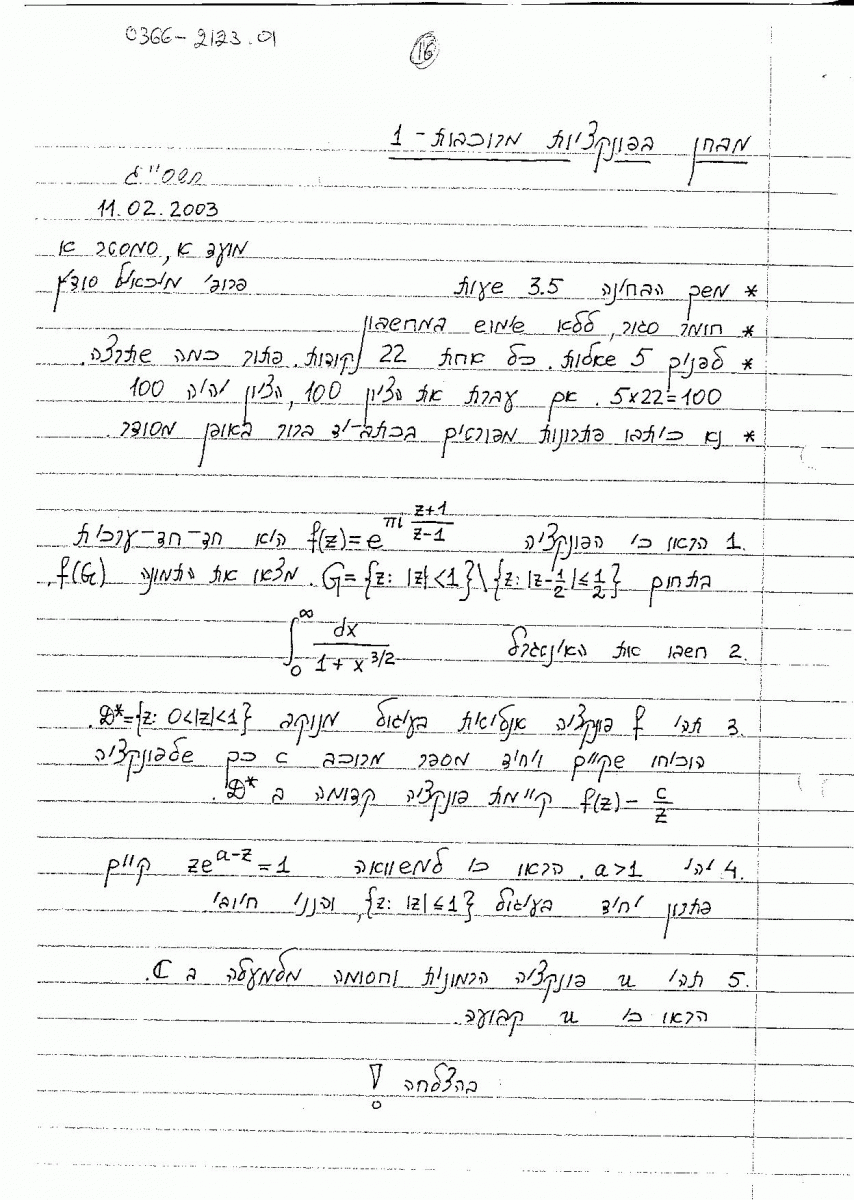 0366-2123.01
16
מבחן בפונקציות מרוכבות - 1
תשס"ג
11.02.2003
מועד א, סמסטר א
פרופ' מיכאיל סודין
* משך הבחינה 3.5 שעות
* חומר סגור, ללא שימוש במחשבון
* לפניך 5 שאלות. כל אחת 22 נקודות. פתור כמה שתרצה.
5x22=100. אם עברת את הציון 100, הציון יהיה 100
* נא כיתבו פתרונות מפורטים בכתב-יד ברור באופן מסודר.
1. הראו כי הפונקציה f(z)=e^{πi (z+1)/(z-1)} היא חד-חד-ערכית
בתחום G={z: |z|<1}\{z: |z-1/2|≤1/2}. מצאו את התמונה f(G).
2. חשבו את האינטגרל ∫_0^∞ dx/(1+x^{3/2})
3. תהי f פונקציה אנליטית בעיגול מנוקב D*={z: 0<|z|<1}.
הוכיחו שקיים ויחיד מספר מרוכב c כך שלפונקציה
f(z) - c/z קיימת פונקציה קדומה ב D*.
4. יהי a>1. הראו כי למשוואה ze^{a-z}=1 קיים
פתרון יחיד בעיגול {z: |z|≤1}, והנני חיובי
5. תהי u פונקציה הרמונית וחסומה מלמעלה ב C.
הראו כי u קבועה.
בהצלחה!